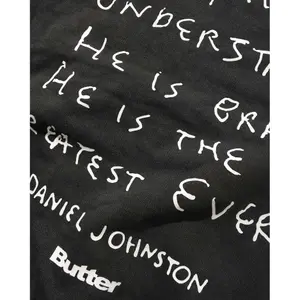 UNDERST
HE IS
HE IS THE
EATEST EVER
DANIEL JOHNSTON
Butter